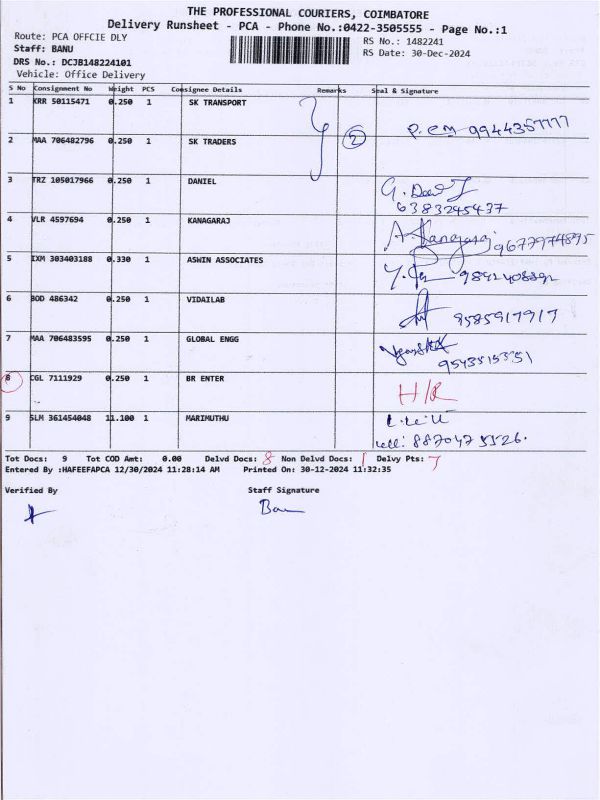 THE PROFESSIONAL COURIERS, COIMBATORE
Delivery Runsheet - PCA - Phone No.:0422-3505555 - Page No.:1
Route: PCA OFFCIE DLY
RS No.: 1482241
Staff: BANU
RS Date: 30-Dec-2024
DRS No.: DCJB148224101
Vehicle: Office Delivery
S No Consignment No Weight PCS Consignee Details Remarks Seal & Signature
1 KRR 50115471 0.250 1 SK TRANSPORT
2 MAA 706482796 0.250 1 SK TRADERS 2
3 TRZ 105017966 0.250 1 DANIEL
6383245437
4 VLR 4597694 0.250 1 KANAGARAJ
9677974895
5 IXM 303403188 0.330 1 ASWIN ASSOCIATES
6 BOD 486342 0.250 1 VIDAILAB 8585917917
7 MAA 706483595 0.250 1 GLOBAL ENGG
9543515351
8 CGL 7111929 0.250 1 BR ENTER H/R
9 SLM 361454048 11.100 1 MARIMUTHU
cell: 8870475526.
Tot Docs: 9 Tot COD Amt: 0.00 Delvd Docs: 8 Non Delvd Docs: 1 Delvy Pts: 7
Entered By :HAFEEFAPCA 12/30/2024 11:28:14 AM Printed On: 30-12-2024 11:32:35
Verified By Staff Signature